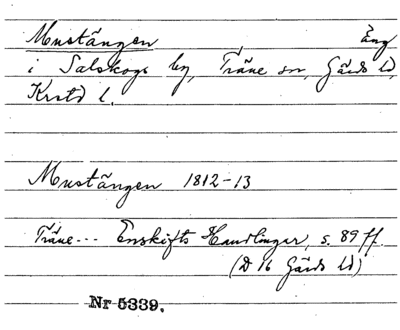 Mustängen Äng
i Salskogs by, Träne sn, Gärds hd,
Krstd l.
Mustängen 1812-13
Träne... Enskifts Handlingar, s. 89 ff.
(D 16 Gärds hd)
Nr 5339.